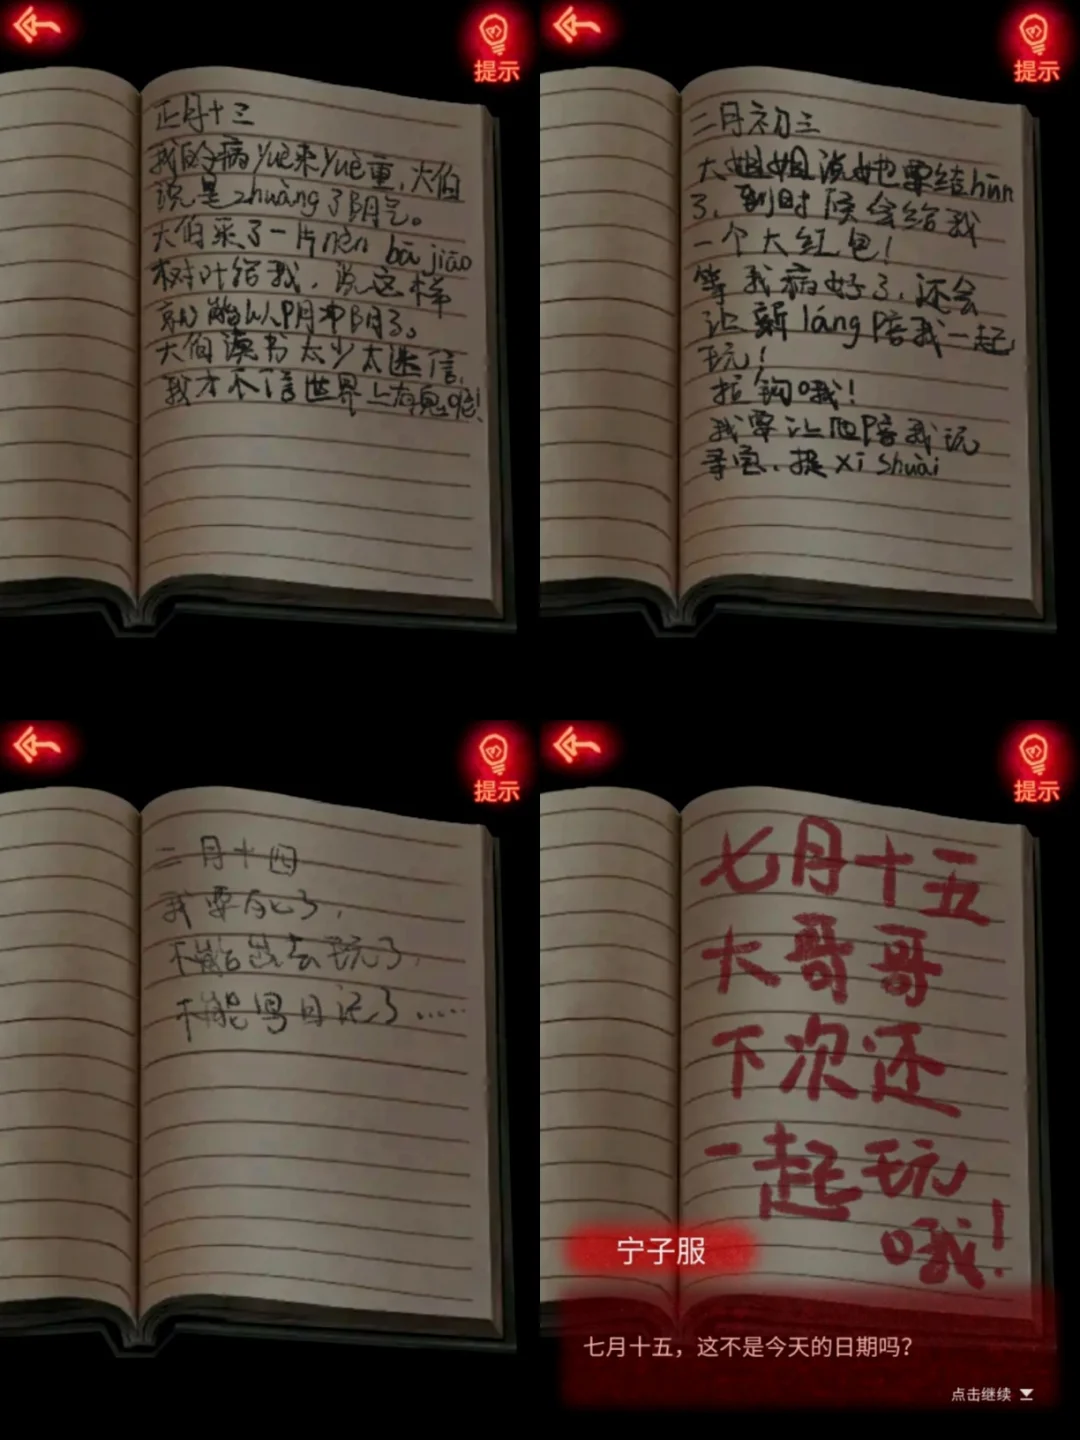 提示
正月十三
我的病yuè来yuè重,大伯
说是zhuàng了阴气。
大伯采了一片nèn bā jiāo
树叶给我,说这样
就能以阴冲阴了。
大伯读书太少太迷信,
我才不信世界上有鬼呢!
提示
二月初三
大姐姐说她要结hūn
了,到时候会给我
一个大红包!
等我病好了,还会
让新láng陪我一起
玩!
拉钩哦!
我要让他陪我玩
寻宝、捉xī shuài
提示
二月十四
我要死了,
不能出去玩了,
不能写日记了……
提示
七月十五
大哥哥
下次还
一起玩
哦!
宁子服
七月十五,这不是今天的日期吗?
点击继续